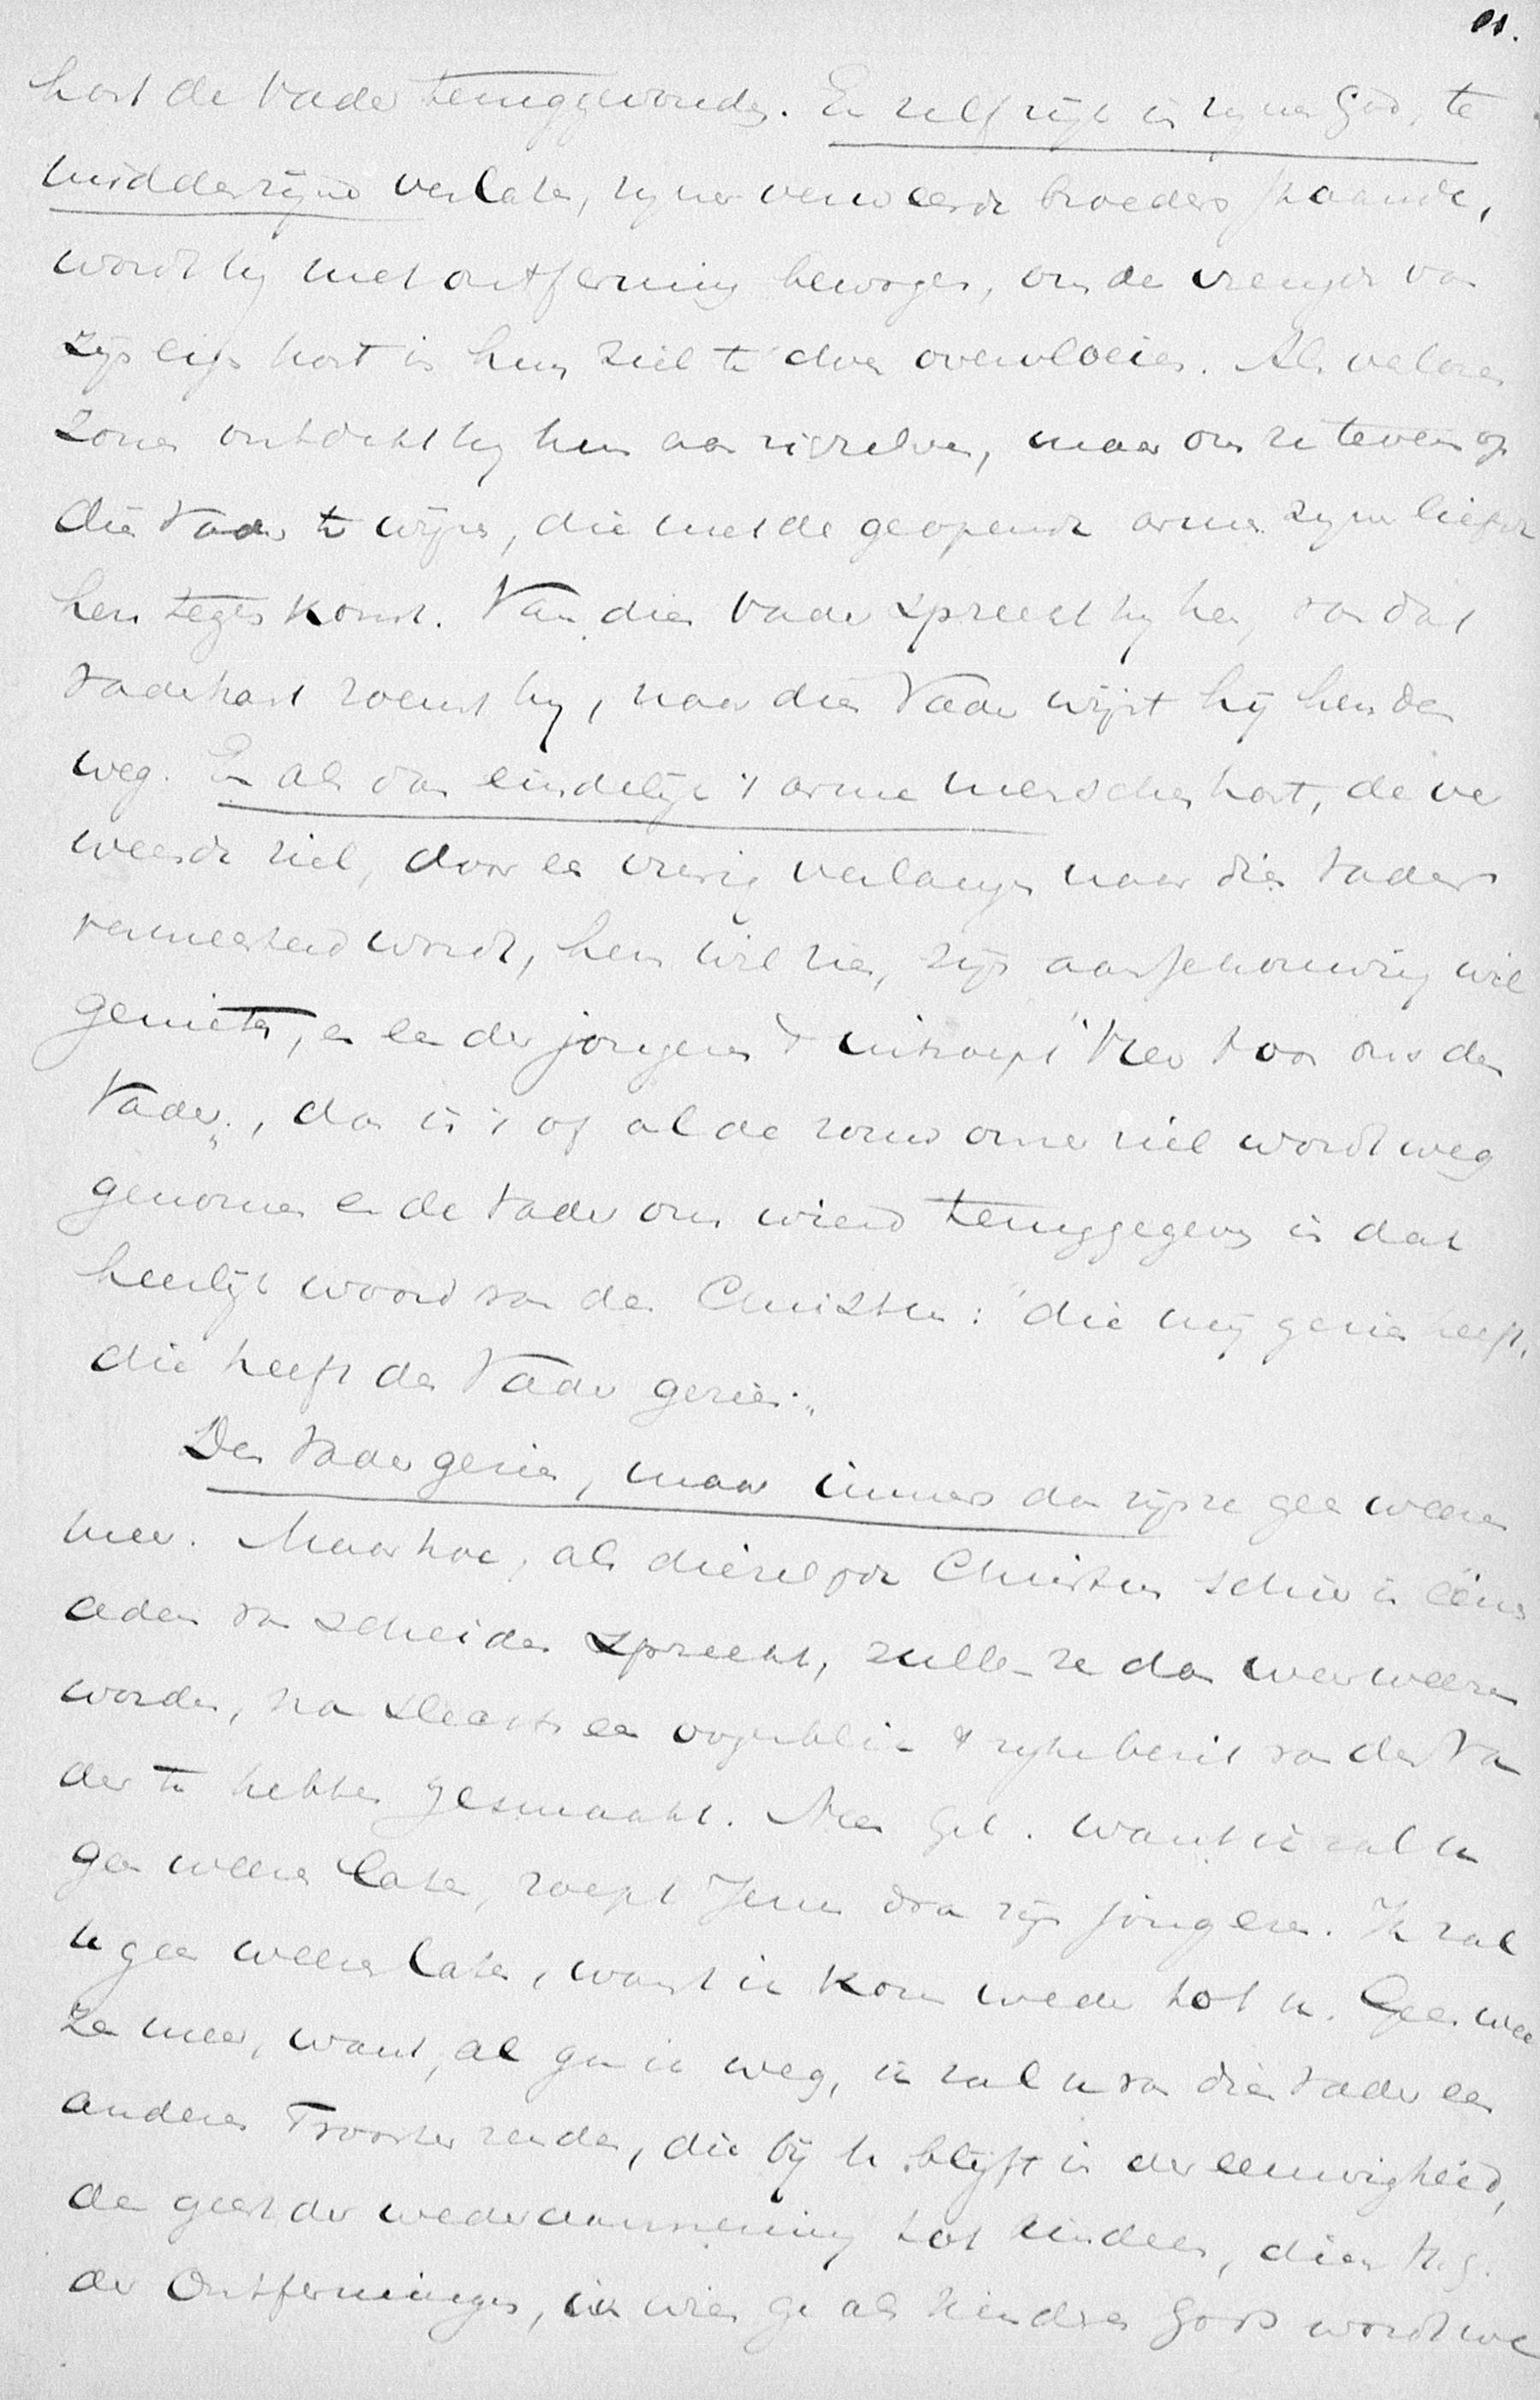 hart de Vader teruggevonden. En zelf rijk in zijnen God, te
midden zijner verlaten, zijner verweesde broeders staande,
wordt hij met ontferming bewogen, om de vreugde van
zijn eigen hart in hun ziel te doen overvloeien. Als verloren
zonen ontdekt hij hen aan zichzelven, maar om ze tevens op
dien Vader te wijzen, die met de geopende armen zijner liefde
hen tegen komt. Van dien Vader spreekt hij hen, van dat
Vaderhart roemt hij, naar dien Vader wijst hij hen den
weg. En als dan eindelijk 't arme menschenhart, de ver
weesde ziel, door een vurig verlangen naar dien Vader
vermeesterd wordt, hem wil zien, zijn aanschouwing wil
genieten, en een der jongeren 't uitroept "Heer toon ons den
Vader.„, dan is 't of al de rouw onzer ziel wordt weg
genomen en de Vader ons wierd teruggegeven in dat
heerlijk woord van den Christus: "die mij gezien heeft,
die heeft den Vader gezien.„
Den Vader gezien, maar immers dan zijn ze geen weezen
meer. Maar hoe, als diezelfde Christus schier in één
adem van scheiden spreekt, zullen ze dan weer weezen
worden, na slechts een oogenblik 't zijn bezit van den Va
der te hebben gesmaakt. Neen Gel. want ik zal u
geen weezen laten, roept Jezus dra zijn jongeren. Ik zal
u geen weezen laten, want ik kom weder tot u. Geen wee
zen meer, want, al ga ik weg, ik zal u van dien Vader een
anderen Trooster zenden, die bij u blijft in der eeuwigheid,
den geest der wederaanneming tot kinderen, dien H.G.
der Ontfermingen, in wien ge als kinderen Gods wordt we